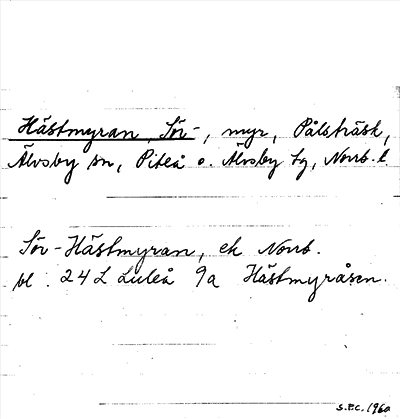 Hästmyran, Sör-, myr, Pålsträsk,
Älvsby sn, Piteå o. Älvsby tg, Norrb. l.
Sör-Hästmyran, ek Norrb.
bl. 24L Luleå 9a Hästmyråsen.
S.P.C. 1960